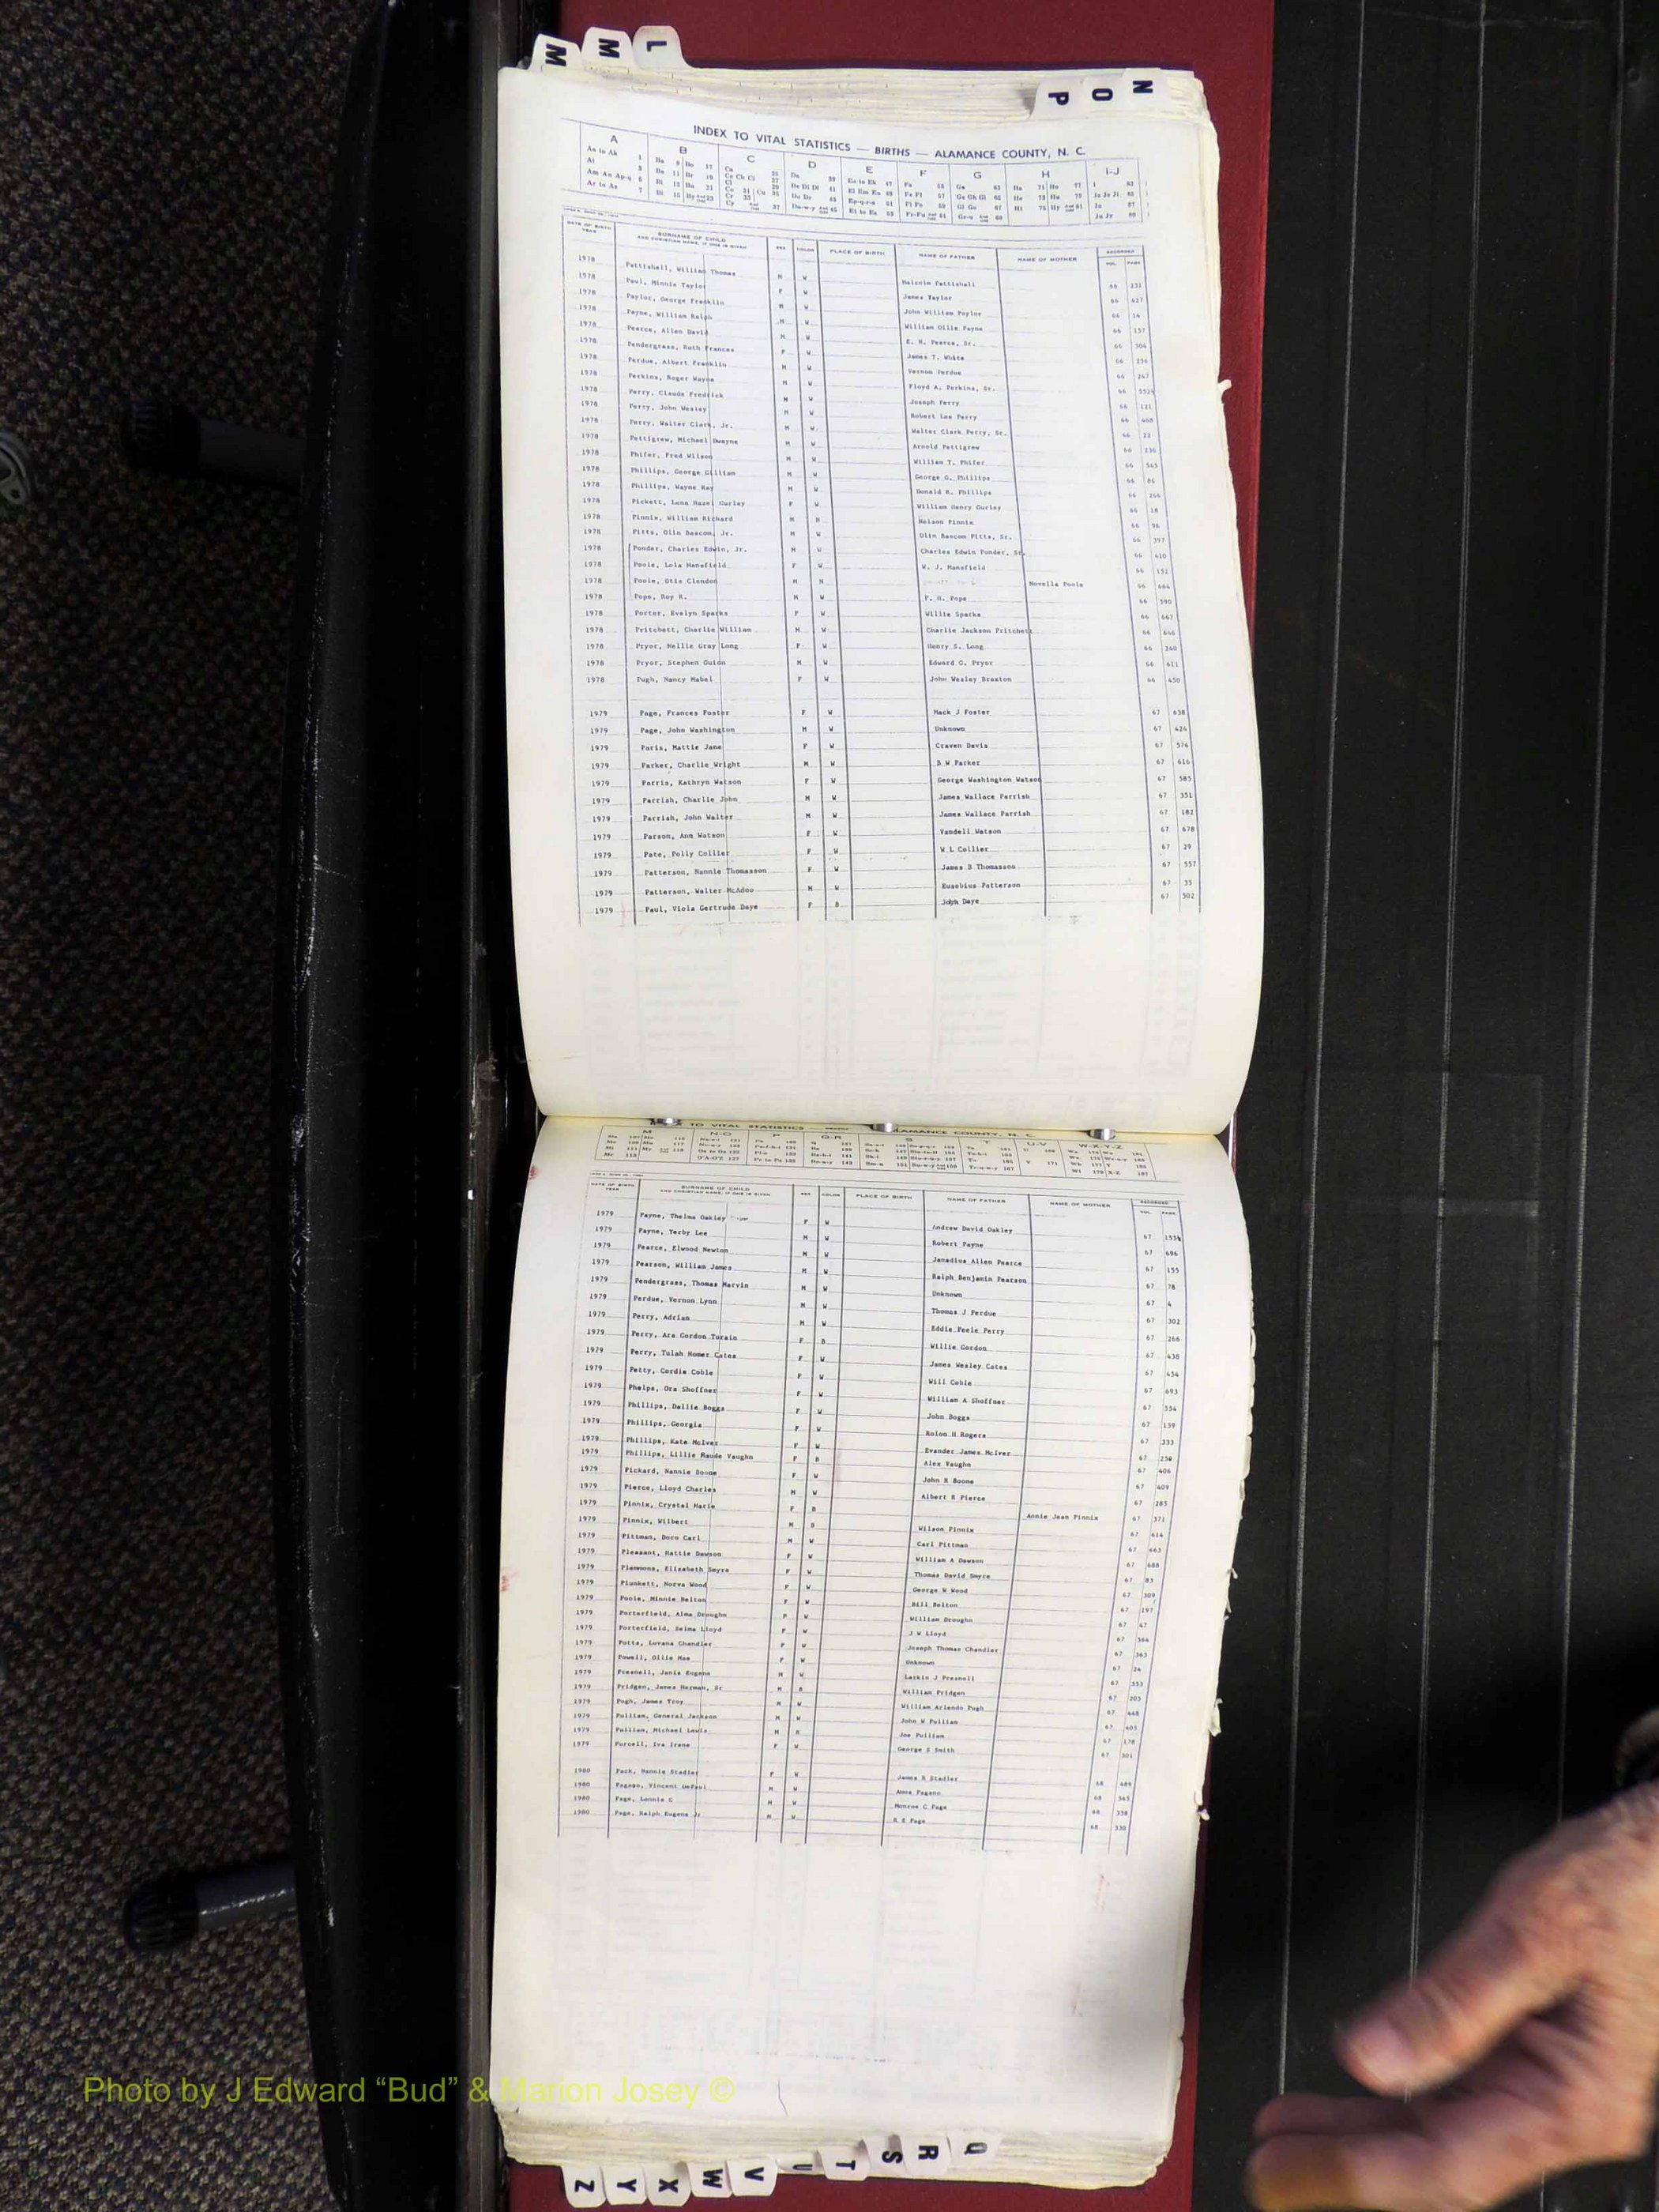 M M L
N O P
INDEX TO VITAL STATISTICS — BIRTHS — ALAMANCE COUNTY, N. C.
A B C D E F G H I-J
DATE OF BIRTH YEAR SURNAME OF CHILD AND CHRISTIAN NAME, IF ONE IS GIVEN SEX COLOR PLACE OF BIRTH NAME OF FATHER NAME OF MOTHER RECORDED VOL. PAGE
1978 Pattishall, William Thomas M W Malcolm Pattishall 66 231
1978 Paul, Minnie Taylor F W James Taylor 66 427
1978 Paylor, George Franklin M W John William Paylor 66 14
1978 Payne, William Ralph M W William Ollie Payne 66 157
1978 Pearce, Allen David M W E. H. Pearce, Sr. 66
1978 Pendergrass, Ruth Frances F W James T. White 66
1978 Perdue, Albert Franklin M W Vernon Perdue 66 247
1978 Perkins, Roger Wayne M W Floyd A. Perkins, Sr. 66
1978 Perry, Claude Fredrick M W Joseph Perry 66 121
1978 Perry, John Wesley M W Robert Lee Perry 66 468
1978 Perry, Walter Clark, Jr. M W Walter Clark Perry, Sr. 66 22
1978 Pettigrew, Michael Dwayne M W Arnold Pettigrew 66 236
1978 Phifer, Fred Wilson M W William T. Phifer 66 545
1978 Phillips, George Gilliam M W George G. Phillips 66 86
1978 Phillips, Wayne Ray M W Donald R. Phillips 66 266
1978 Pickett, Lena Hazel Gurley F W William Henry Gurley 66 18
1978 Pinnix, William Richard M B Nelson Pinnix 66 96
1978 Pitts, Olin Bascom, Jr. M W Olin Bascom Pitts, Sr. 66 397
1978 Ponder, Charles Edwin, Jr. M W Charles Edwin Ponder, Sr. 66 410
1978 Poole, Lola Mansfield F W W. J. Mansfield 66 152
1978 Poole, Otis Clendon M N Novella Poole 66 664
1978 Pope, Roy R. M W P. H. Pope 66 590
1978 Porter, Evelyn Sparks F W Willie Sparks 66 667
1978 Pritchett, Charlie William M W Charlie Jackson Pritchett 66 646
1978 Pryor, Nellie Gray Long F W Henry S. Long 66 240
1978 Pryor, Stephen Guion M W Edward G. Pryor 66 611
1978 Pugh, Nancy Mabel F W John Wesley Braxton 66 450
1979 Page, Frances Foster F W Mack J Foster 67 638
1979 Page, John Washington M W Unknown 67 424
1979 Paris, Mattie Jane F W Craven Davis 67 574
1979 Parker, Charlie Wright M W B W Parker 67 616
1979 Parris, Kathryn Watson F W George Washington Watson 67 585
1979 Parrish, Charlie John M W James Wallace Parrish 67 351
1979 Parrish, John Walter M W James Wallace Parrish 67 182
1979 Parson, Ann Watson F W Vandell Watson 67 678
1979 Pate, Polly Collier F W W L Collier 67 29
1979 Patterson, Nannie Thomasson F W James B Thomasson 67 557
1979 Patterson, Walter McAdoo M W Eusebius Patterson 67 35
1979 Paul, Viola Gertrude Daye F B John Daye 67 502
TO VITAL STATISTICS ALAMANCE COUNTY, N. C.
M N-O P Q-R S T U-V W-X-Y-Z
DATE OF BIRTH YEAR SURNAME OF CHILD AND CHRISTIAN NAME, IF ONE IS GIVEN SEX COLOR PLACE OF BIRTH NAME OF FATHER NAME OF MOTHER RECORDED VOL. PAGE
1979 Payne, Thelma Oakley F W Andrew David Oakley 67
1979 Payne, Yerby Lee M W Robert Payne 67 696
1979 Pearce, Elwood Newton M W Janadius Allen Pearce 67 155
1979 Pearson, William James M W Ralph Benjamin Pearson 67 78
1979 Pendergrass, Thomas Marvin M W Unknown 67 4
1979 Perdue, Vernon Lynn M W Thomas J Perdue 67 302
1979 Perry, Adrian M W Eddie Peele Perry 67 266
1979 Perry, Ara Gordon Torain F B Willie Gordon 67 438
1979 Perry, Tulah Homer Cates F W James Wesley Cates 67 454
1979 Petty, Cordie Coble F W Will Coble 67 693
1979 Phelps, Ora Shoffner F W William A Shoffner 67 554
1979 Phillips, Dallie Boggs F W John Boggs 67 159
1979 Phillips, Georgia F W Rolon H Rogers 67 333
1979 Phillips, Kate McIver F W Evander James McIver 67 250
1979 Phillips, Lillie Maude Vaughn F B Alex Vaughn 67 406
1979 Pickard, Nannie Boone F W John R Boone 67 409
1979 Pierce, Lloyd Charles M W Albert R Pierce 67 285
1979 Pinnix, Crystal Marie F B Annie Jean Pinnix 67 371
1979 Pinnix, Wilbert M B Wilson Pinnix 67 614
1979 Pittman, Dorn Carl M W Carl Pittman 67 663
1979 Pleasant, Hattie Dawson F W William A Dawson 67 688
1979 Plemmons, Elizabeth Smyre F W Thomas David Smyre 67 83
1979 Plunkett, Norva Wood F W George W Wood 67 309
1979 Poole, Minnie Belton F W Bill Belton 67 197
1979 Porterfield, Alma Droughn F W William Droughn 67 47
1979 Porterfield, Selma Lloyd F W J W Lloyd 67 364
1979 Potts, Luvena Chandler F W Joseph Thomas Chandler 67 363
1979 Powell, Ollie Mae F W Unknown 67 24
1979 Presnell, Janis Eugene M W Larkin J Presnell 67 353
1979 Pridgen, James Herman, Sr M B William Pridgen 67 205
1979 Pugh, James Troy M W William Arlendo Pugh 67 448
1979 Pulliam, General Jackson M W John W Pulliam 67 405
1979 Pulliam, Michael Lewis M B Joe Pulliam 67 178
1979 Purcell, Iva Irene F W George S Smith 67 301
1980 Pack, Nannie Stadler F W James R Stadler 68 489
1980 Pagano, Vincent DePaul M W Amos Pagano 68 345
1980 Page, Lonnie C M W Monroe C Page 68 338
1980 Page, Ralph Eugene Jr M W R E Page 68 330
Photo by J Edward “Bud” & Marion Josey ©
Z Y X W V U T S R Q